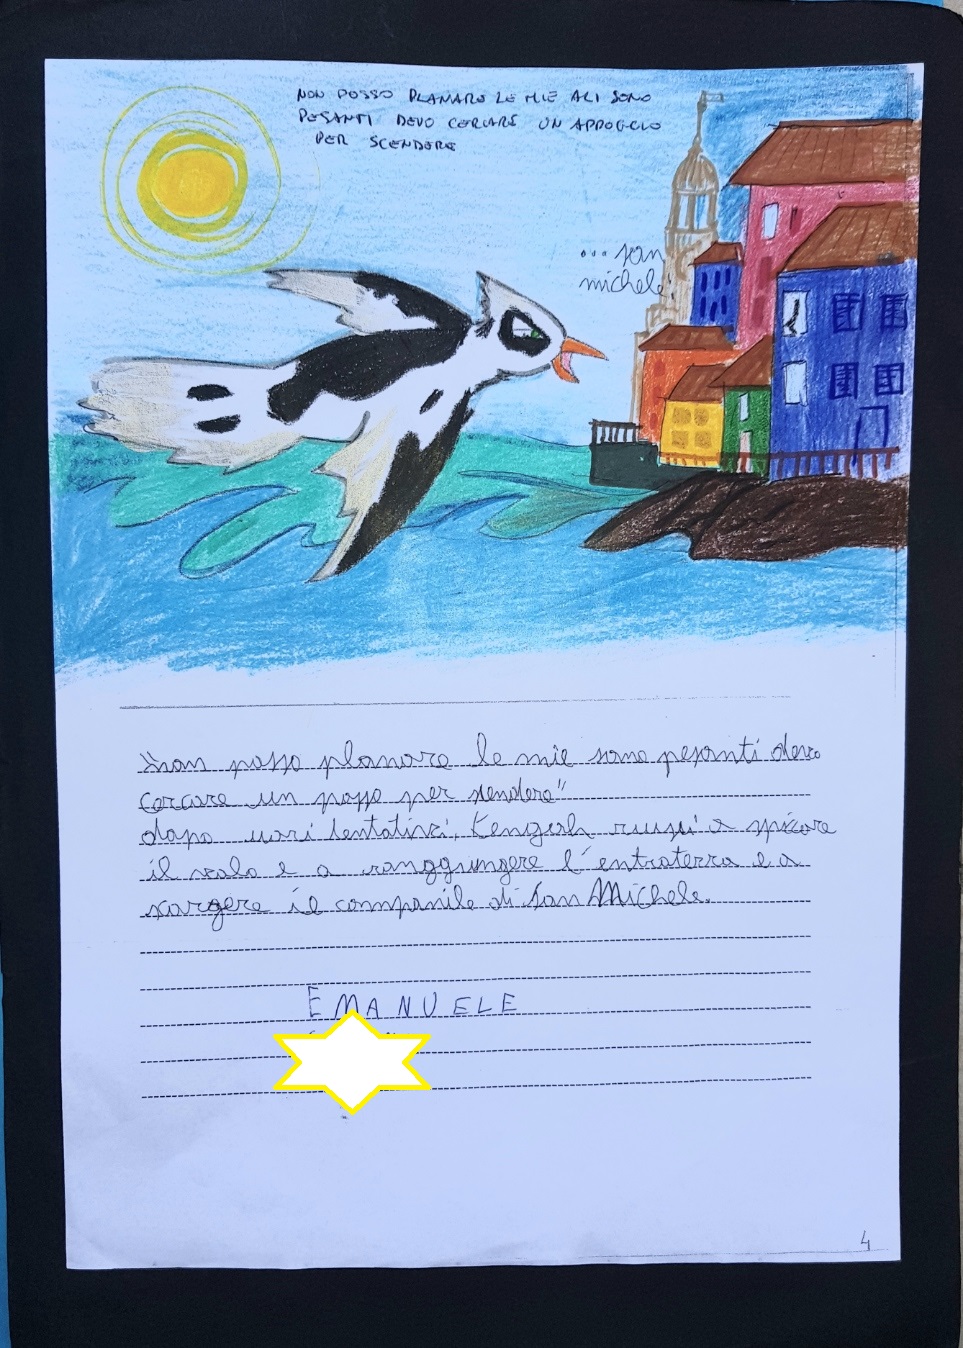 NON POSSO PLANARE LE MIE ALI SONO
PESANTI DEVO CERCARE UN APPOGGIO
PER SCENDERE
... san
michele!
"non posso planare le mie sono pesanti devo
cercare un posso per scendere"
dopo vari tentativi, Kengah riuscì a spiccare
il volo e a ranggiungere l'entroterra e a
sorgere il companile di San Michele.
EMANUELE
4